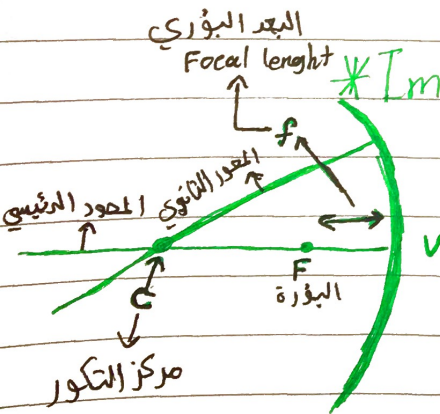 البعد البؤري
Focal lenght
* Im
f
المحور الثانوي
المحور الرئيسي
C
F
البؤرة
مركز التكور